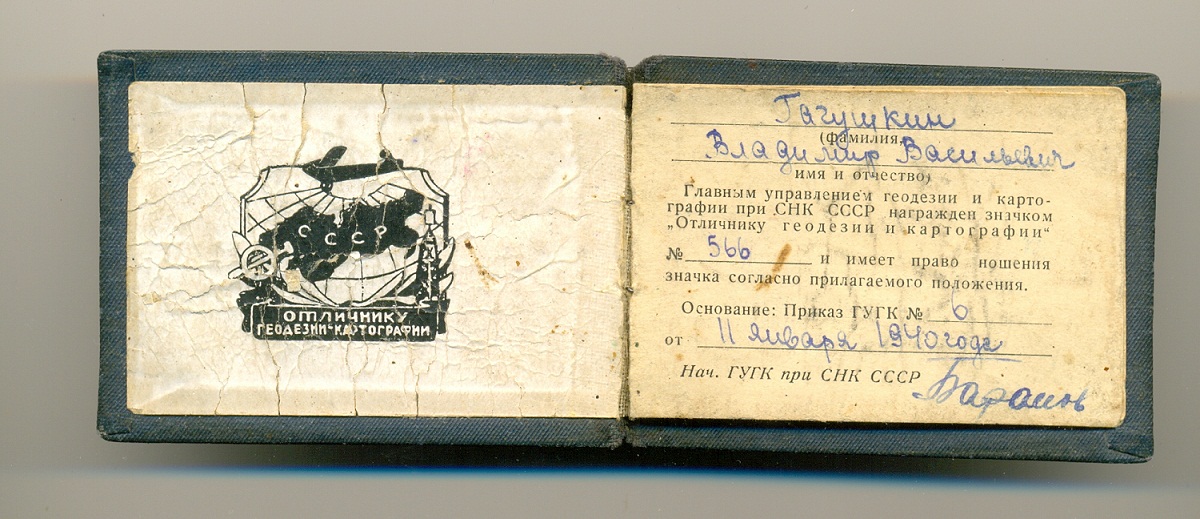 СССР
ОТЛИЧНИКУ
ГЕОДЕЗИИ И КАРТОГРАФИИ
Гагушкин
(фамилия,
Владимир Васильевич
имя и отчество)
Главным управлением геодезии и карто-
графии при СНК СССР награжден значком
„Отличнику геодезии и картографии“
№ 566 и имеет право ношения
значка согласно прилагаемого положения.
Основание: Приказ ГУГК № 6
от 11 января 1940 года
Нач. ГУГК при СНК СССР